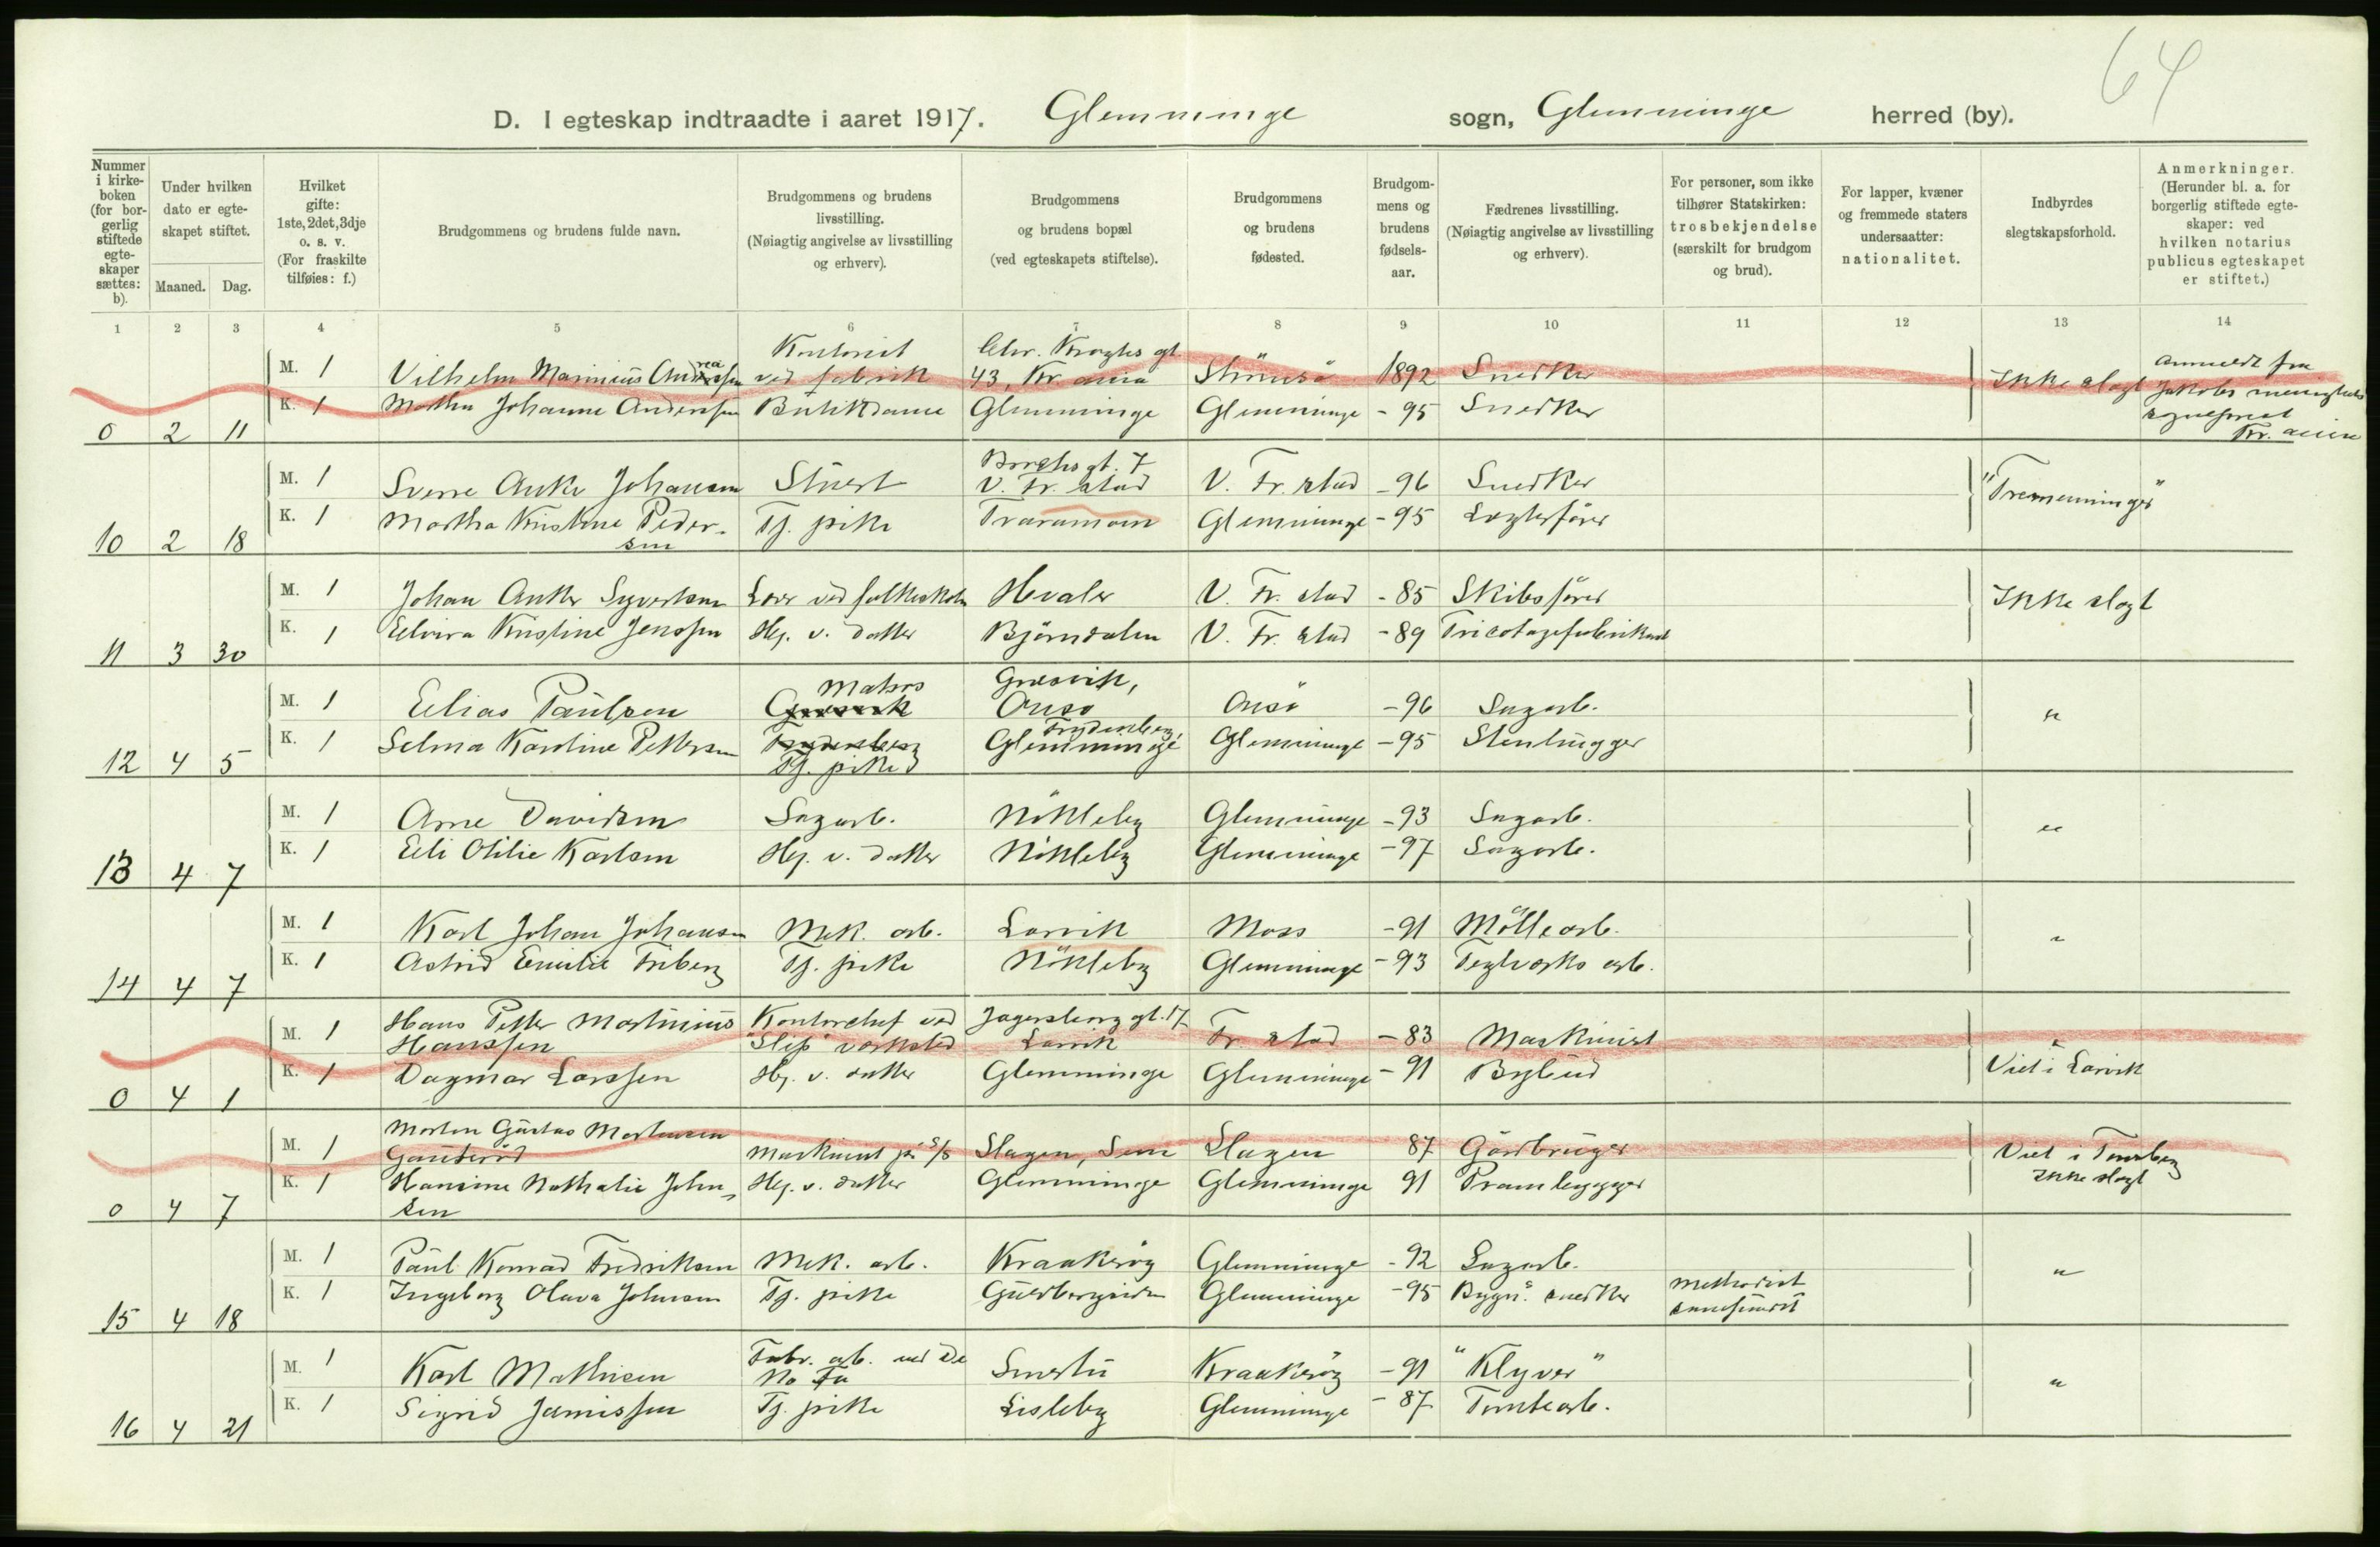 64
D. I egteskap indtraadte i aaret 1917. Glemminge sogn, Glemminge herred (by).
Nummer i kirkeboken (for borgerlig stiftede egteskaper sættes: b).
Under hvilken dato er egteskapet stiftet.
Maaned. Dag.
Hvilket gifte: 1ste, 2det, 3dje o. s. v. (For fraskilte tilføies: f.)
Brudgommens og brudens fulde navn.
Brudgommens og brudens livsstilling. (Nøiagtig angivelse av livsstilling og erhverv).
Brudgommens og brudens bopæl (ved egteskapets stiftelse).
Brudgommens og brudens fødested.
Brudgommens og brudens fødselsaar.
Fædrenes livsstilling. (Nøiagtig angivelse av livsstilling og erhverv).
For personer, som ikke tilhører Statskirken: trosbekjendelse (særskilt for brudgom og brud).
For lapper, kvæner og fremmede staters undersaatter: nationalitet.
Indbyrdes slegtskapsforhold.
Anmerkninger. (Herunder bl. a. for borgerlig stiftede egteskaper: ved hvilken notarius publicus egteskapet er stiftet.)
1 2 3 4 5 6 7 8 9 10 11 12 13 14
Kontorist Chr. Kroghs gt.
M. 1 Vilhelm Marinius Andreassen ved fabrik 43, Kr.ania Strømsö 1892 Snedker Ikke slegt Anmeldt fra Jakobs menigheds
K. 1 Martha Johanne Andersen Butikdame Glemminge Glemminge - 95 Snedker
0 2 11 Kr. ania
Borghs gt. 7
M. 1 Sverre Anker Johansen Stuert V. Fr.stad V. Fr.stad - 96 Snedker "Tremenninger"
K. 1 Martha Kristine Peder- Tj. pike Traramoen Glemminge - 95 Lægterfører
10 2 18 sen
M. 1 Johan Anker Syvertsen Lærer ved folkeskolen Hvaler V. Fr.stad - 85 Skibsfører Ikke slegt
K. 1 Elvira Kristine Jenssen Hj. v. datter Bjørndalen V. Fr.stad - 89 Tricotagefabrikant
11 3 30
Matros Gresvik,
M. 1 Elias Paulsen Onsø Onsø - 96 Sagarb. "
Frydenberg,
K. 1 Selma Karoline Pettersen Glemminge Glemminge - 95 Stenhugger
12 4 5 Tj. pike
M. 1 Arne Davidsen Sagarb. Nökleby Glemminge - 93 Sagarb. "
K. 1 Elli Otilie Karlsen Hj. v. datter Nökleby Glemminge - 97 Sagarb.
13 4 7
M. 1 Karl Johan Johansen Mek. arb. Larvik Moss - 91 Möllearb. "
K. 1 Astrid Emilie Friberg Tj. pike Nökleby Glemminge - 93 Teglverks arb.
14 4 7
Hans Petter Martinius Kontorchef ved Jagersborg gt. 17
M. 1 Hanssen "Slip" verksted Larvik Fr.stad - 83 Maskinist "
K. 1 Dagmar Larssen Hj. v. datter Glemminge Glemminge - 91 Bybud Viet i Larvik
0 4 1
Morten Gustav Mortensen
M. 1 Gauterød Maskinist på S/S Slagen, Sem Slagen 87 Gårdbruger Viet i Tønsberg
K. 1 Hansine Nathalie John- Hj. v. datter Glemminge Glemminge 91 Prambygger Ikke slegt
0 4 7 sen
M. 1 Paul Konrad Fredriksen Mek. arb. Kraakerøy Glemminge - 92 Sagarb. "
K. 1 Ingeborg Olava Johnsen Tj. pike Gudbergsiden Glemminge - 95 Bygn. snedker Methodist samfund
15 4 18
Fabr. arb. ved De
M. 1 Karl Mathisen No Fa Smertu Kraakerøy - 91 "Klyver" "
K. 1 Sigrid Jamissen Tj. pike Lisleby Glemminge - 87 Tomtearb.
16 4 21